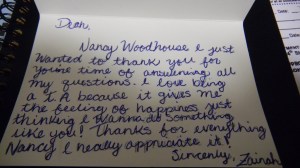 Dear,
Nancy Woodhouse I just
wanted to thank you for
youre time of answering all
my questions. I love being
a T.A because it gives me
the feeling of happiness just
thinking I wanna do something
like you! Thanks for everything
Nancy I really appreciate it!
Sincerely, Zainah